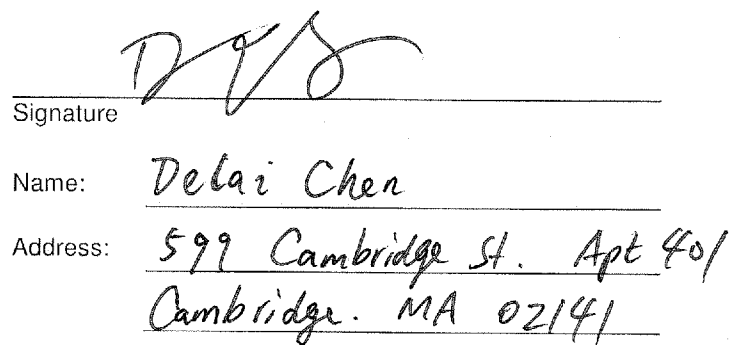 Signature
Name: Delai Chen
Address: 599 Cambridge St. Apt 401
Cambridge. MA 02141